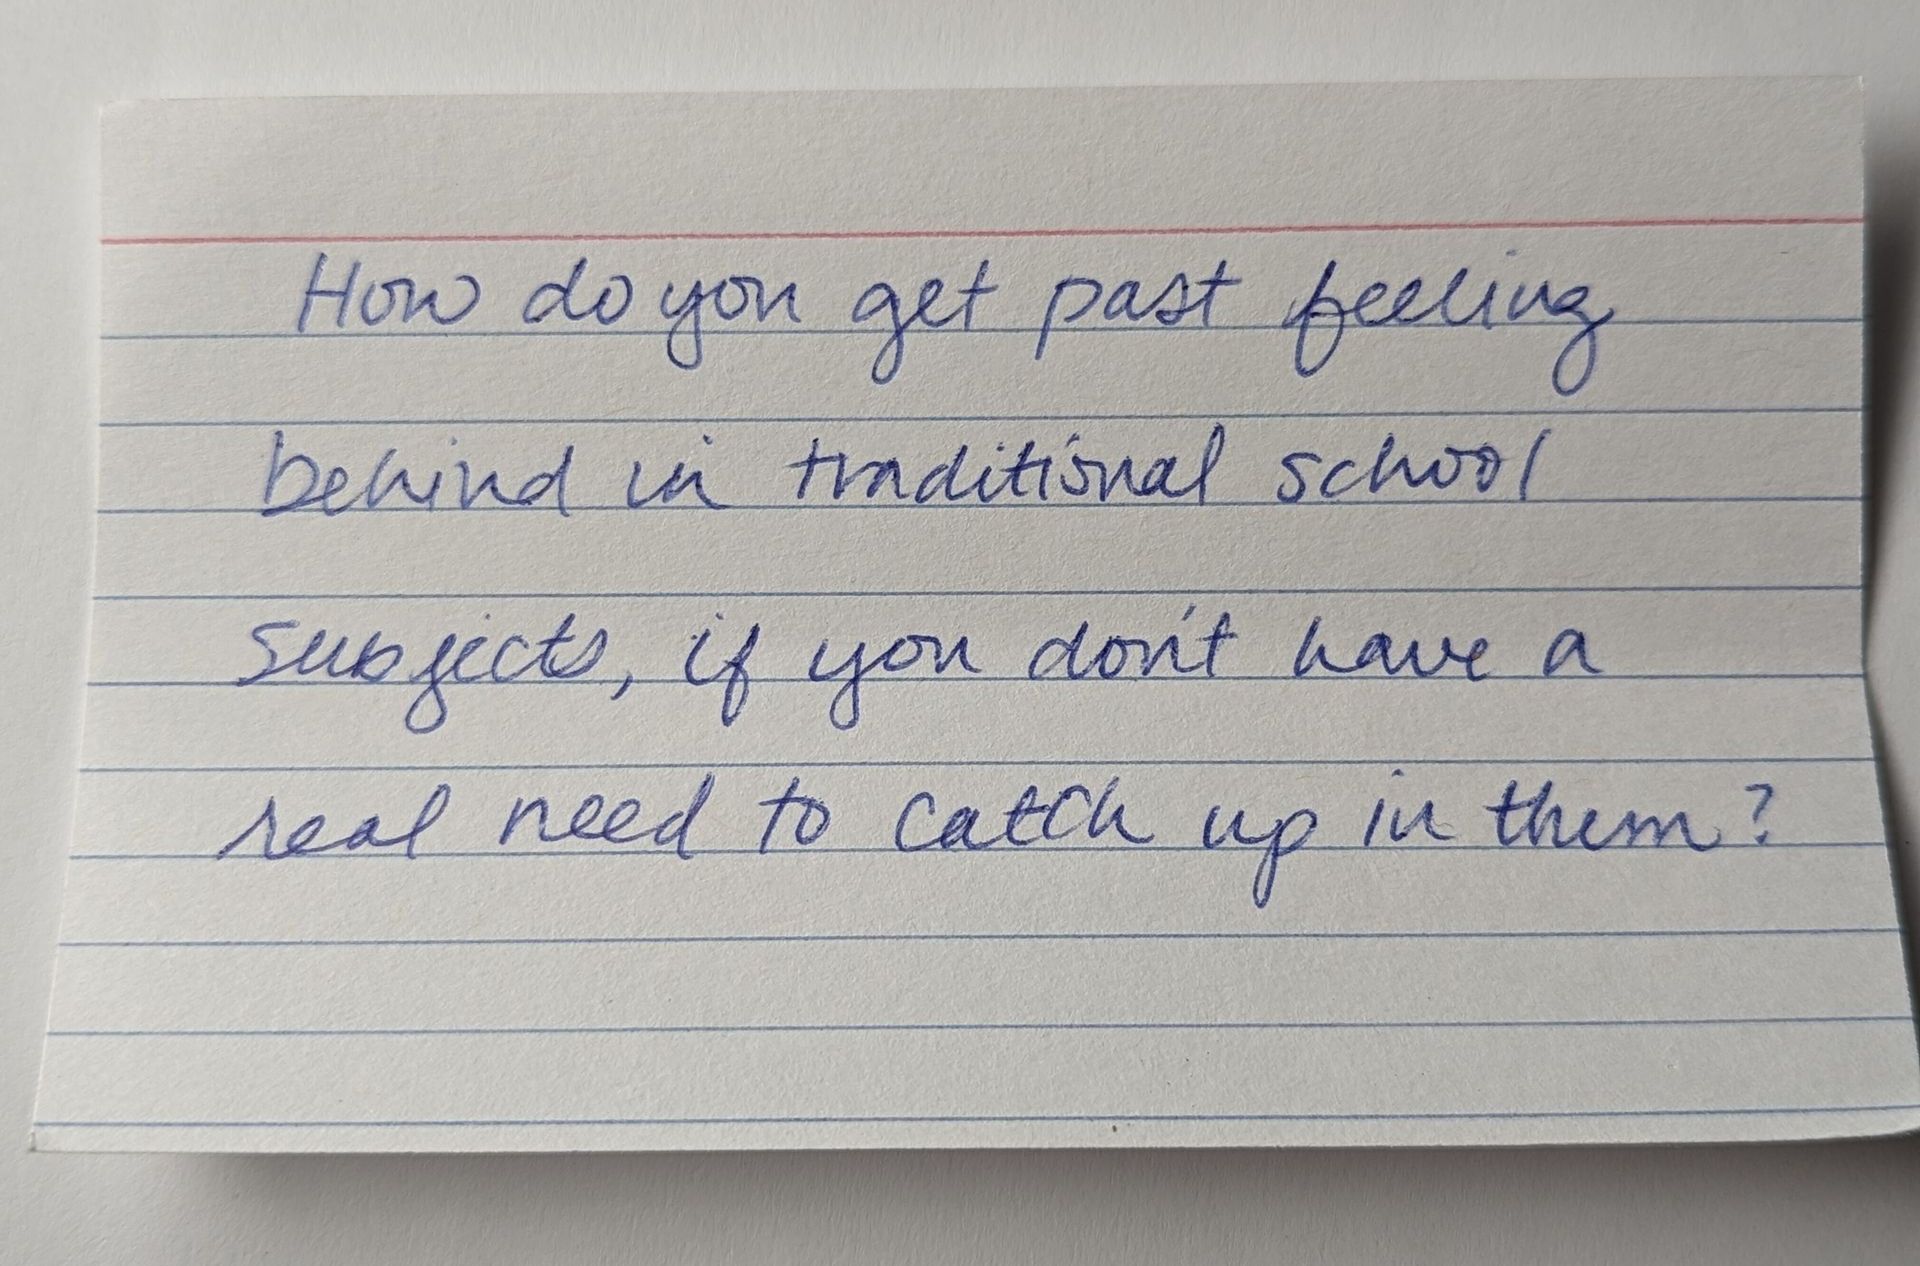 How do you get past feeling
behind in traditional school
subjects, if you don't have a
real need to catch up in them?